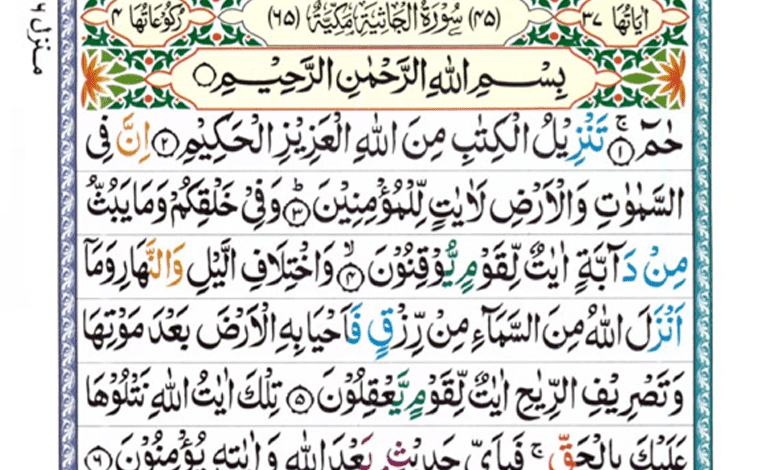 اٰیاتُها ٣٧ (٤٥) سُوْرَةُ الْجَاثِيَةِ مَكِّيَّةٌ (٦٥) رُكُوْعَاتُها ٤
بِسْمِ اللهِ الرَّحْمٰنِ الرَّحِيْمِ ○
حٰمٓ ۚ ١ تَنْزِيْلُ الْكِتٰبِ مِنَ اللهِ الْعَزِيْزِ الْحَكِيْمِ ٢ اِنَّ فِى
السَّمٰوٰتِ وَالْاَرْضِ لَاٰيٰتٍ لِّلْمُؤْمِنِيْنَ ؕ ٣ وَفِىْ خَلْقِكُمْ وَمَا يَبُثُّ
مِنْ دَآبَّةٍ اٰيٰتٌ لِّقَوْمٍ يُّوْقِنُوْنَ ۙ ٤ وَاخْتِلَافِ الَّيْلِ وَالنَّهَارِ وَمَاۤ
اَنْزَلَ اللهُ مِنَ السَّمَآءِ مِنْ رِّزْقٍ فَاَحْيَا بِهِ الْاَرْضَ بَعْدَ مَوْتِهَا
وَتَصْرِيْفِ الرِّيٰحِ اٰيٰتٌ لِّقَوْمٍ يَّعْقِلُوْنَ ٥ تِلْكَ اٰيٰتُ اللهِ نَتْلُوْهَا
عَلَيْكَ بِالْحَقِّ ۚ فَبِاَىِّ حَدِيْثٍۭ بَعْدَ اللهِ وَاٰيٰتِهٖ يُؤْمِنُوْنَ ٦
منزل ٦